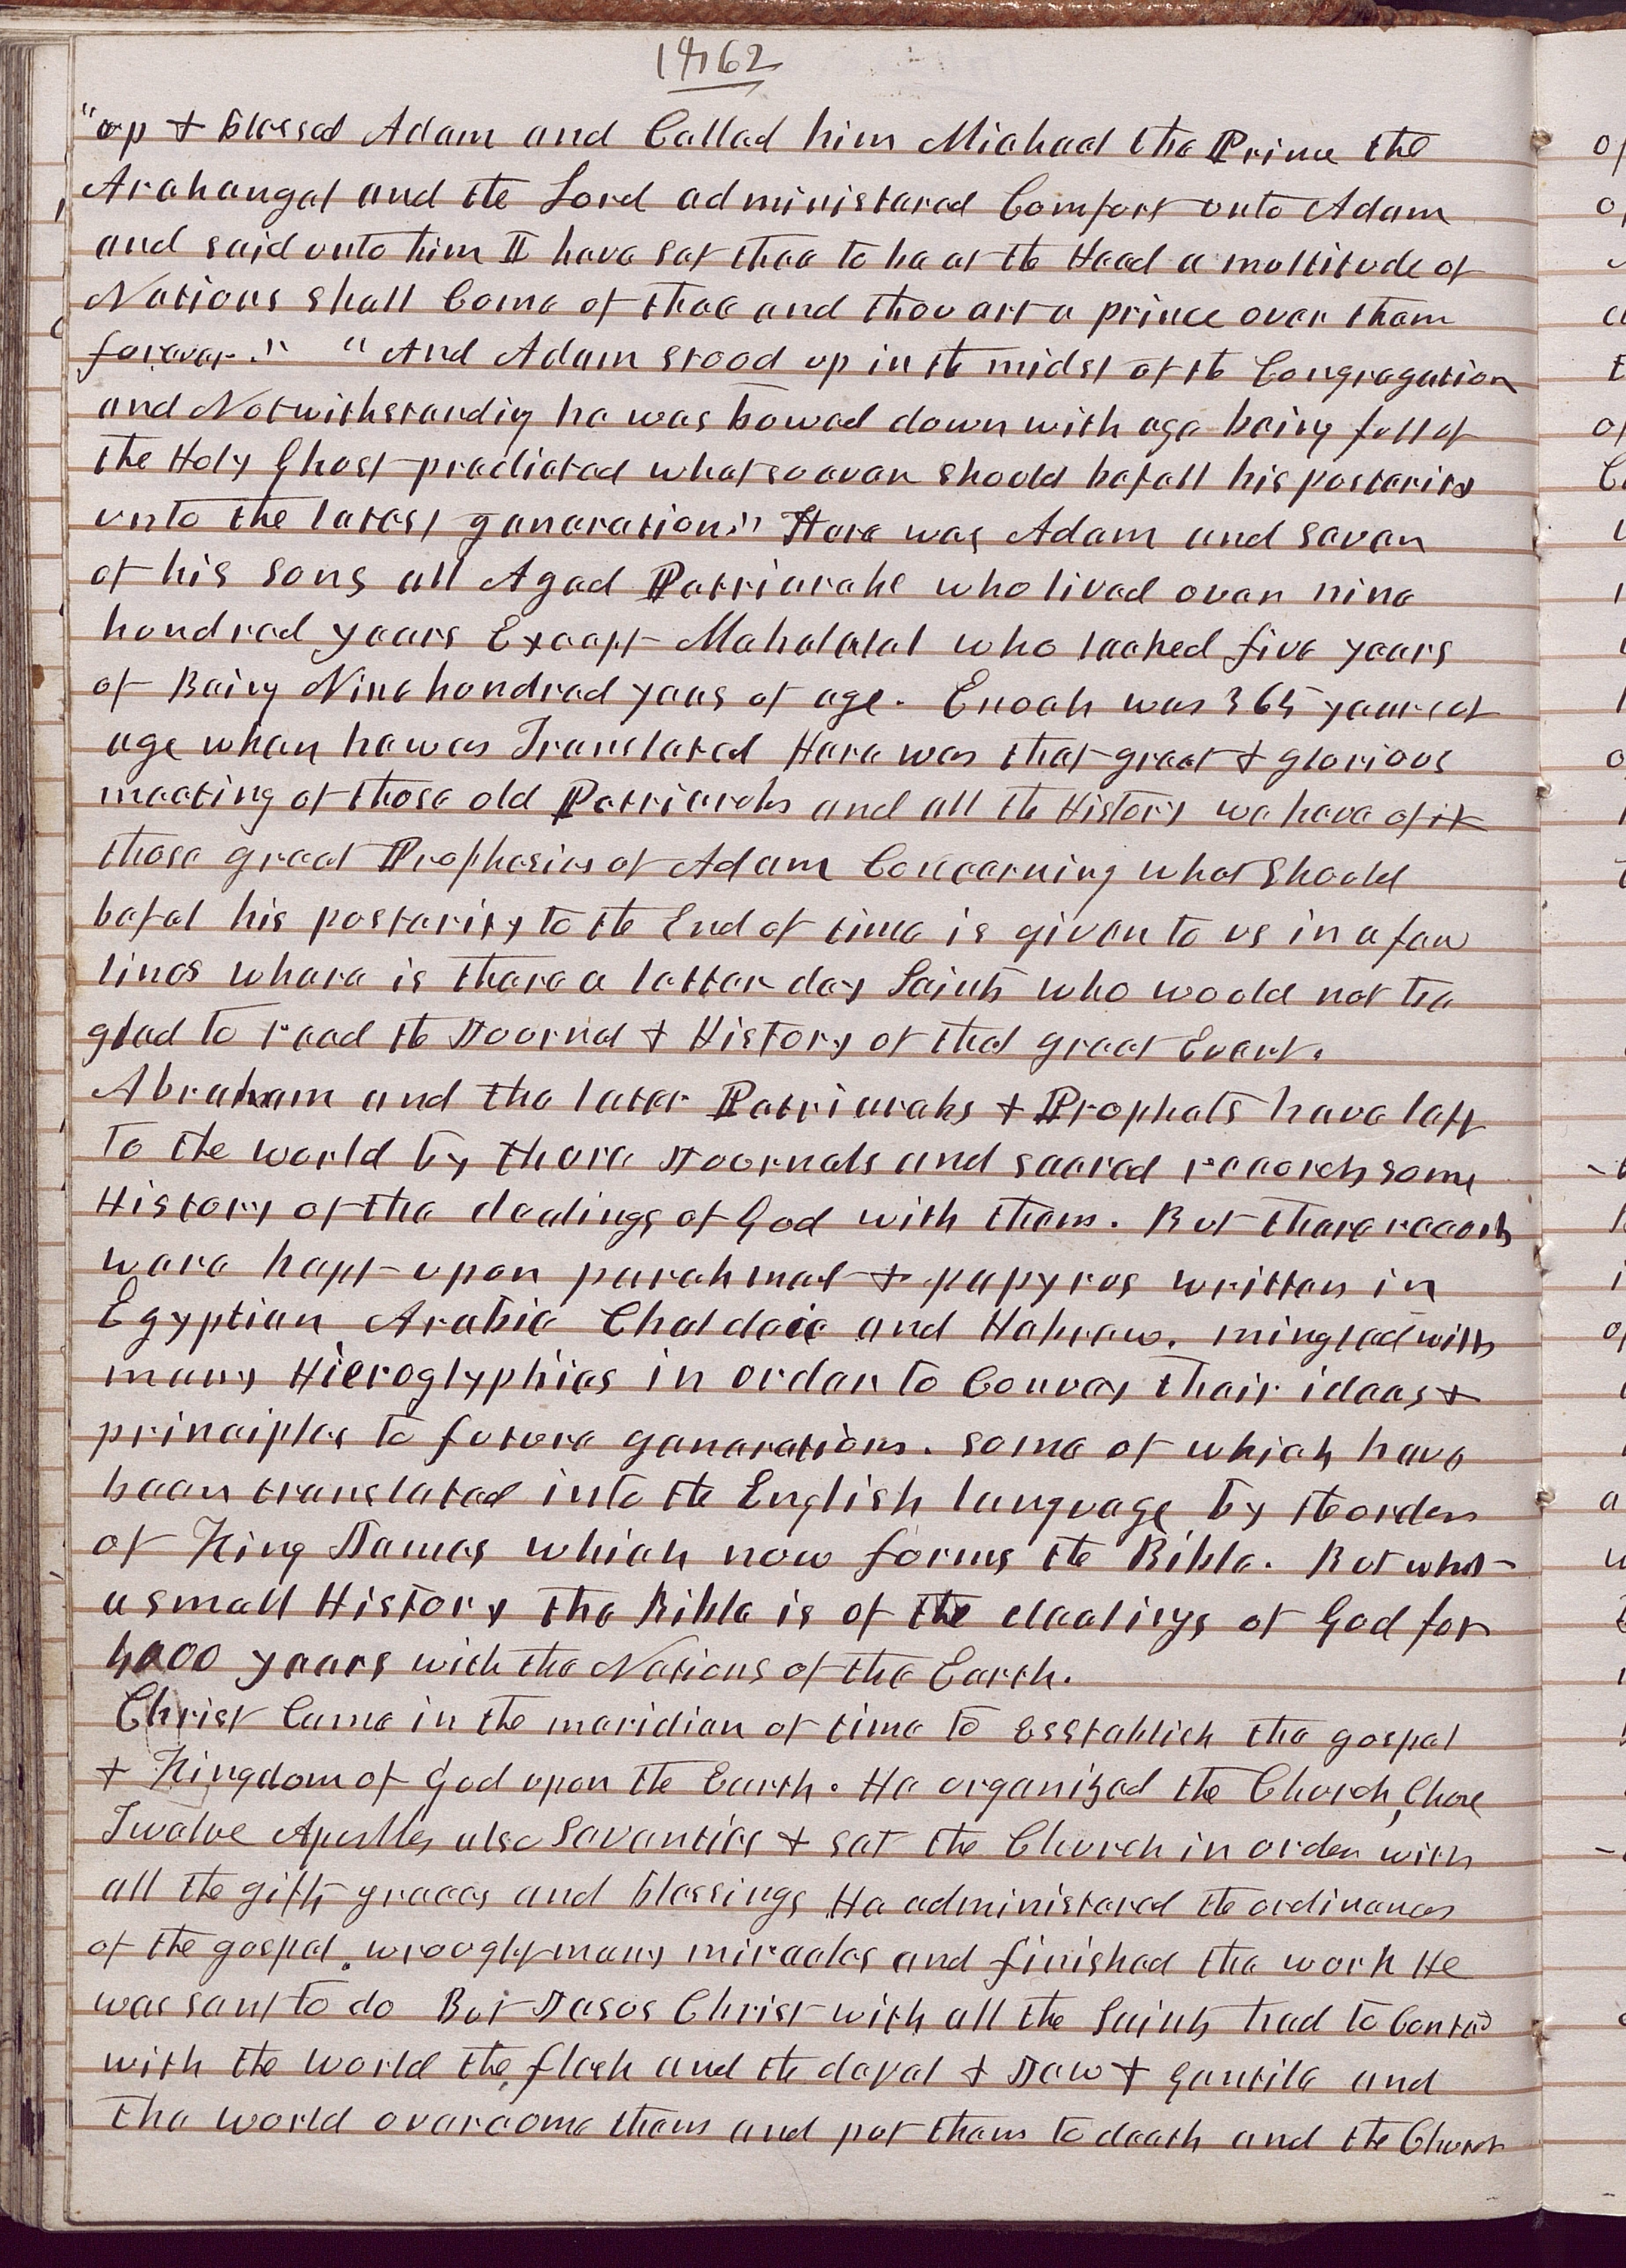 1862
"up & blessed Adam and Called him Michael the Prince the
Archangel and the Lord administered Comfort unto Adam
and said unto him I have set thee to be at the Head a multitude of
Nations shall Come of thee and thou art a prince over them
forever." "And Adam stood up in the midst of the Congregation
and Notwithstandig he was bowed down with age being full of
the Holy Ghost predicted whatsoever should befall his posterity
unto the latest generation." Here was Adam and seven
of his sons all Aged Patriarchs who lived over nine
hundred years Except Mahalalel who lacked five years
of Being Nine hundred years of age. Enoch was 365 years of
age when he was Translated Here was that great & glorious
meeting of those old Patriarchs and all the History we have of it
those great Prophesies of Adam Concerning what should
befal his posterity to the End of time is given to us in a few
lines where is there a latter day Saints who would not be
glad to read the Journal & History of that great Event.
Abraham and the later Patriarchs & Prophets have left
to the world by there Journals and sacred records some
History of the dealings of God with them. But there records
were kept upon parchment & papyrus written in
Egyptian Arabic Chaldaic and Hebrew. mingled with
many Hieroglyphics in order to Convey their ideas &
principles to future generations. some of which have
been translated into the English language by the order
of King James which now forms the Bible. But what
a small History the Bible is of the dealings of God for
4000 years with the Nations of the Earth.
Christ Came in the meridian of time to esstablish the gospel
& Kingdom of God upon the Earth. He organized the Church, Chose
Twelve Apostles also Seventies & set the Church in order with
all the gifts graces and blessings He administered the ordinances
of the gospel. wrought many miracles and finished the work He
was sent to do But Jesus Christ with all the Saints had to Contend
with the world the, flesh and the devel & Jew & Gentile and
the world overcome them and put them to death and the Church